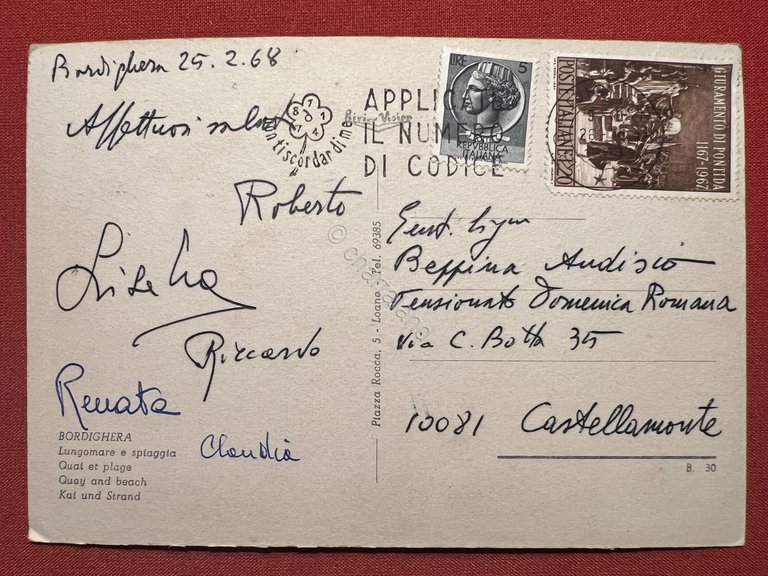 Bordighera 25.2.68
Affettuosi saluti
Roberto
Riccardo
Renata
Claudia
BORDIGHERA
Lungomare e spiaggia
Quai et plage
Quay and beach
Kai und Strand
nontiscordardimé
APPLICA
IL NUMERO
DI CODICE
LIRE 5
REPVBBLICA
ITALIANA
GIURAMENTO DI PONTIDA
1167-1967
POSTE ITALIANE L. 20
Piazza Rocca, 5 - Loano - Tel. 69385
Gent. Sig.na
Beppina Audisio
Pensionato Domenica Romana
Via C. Botta 35
10081 Castellamonte
B. 30